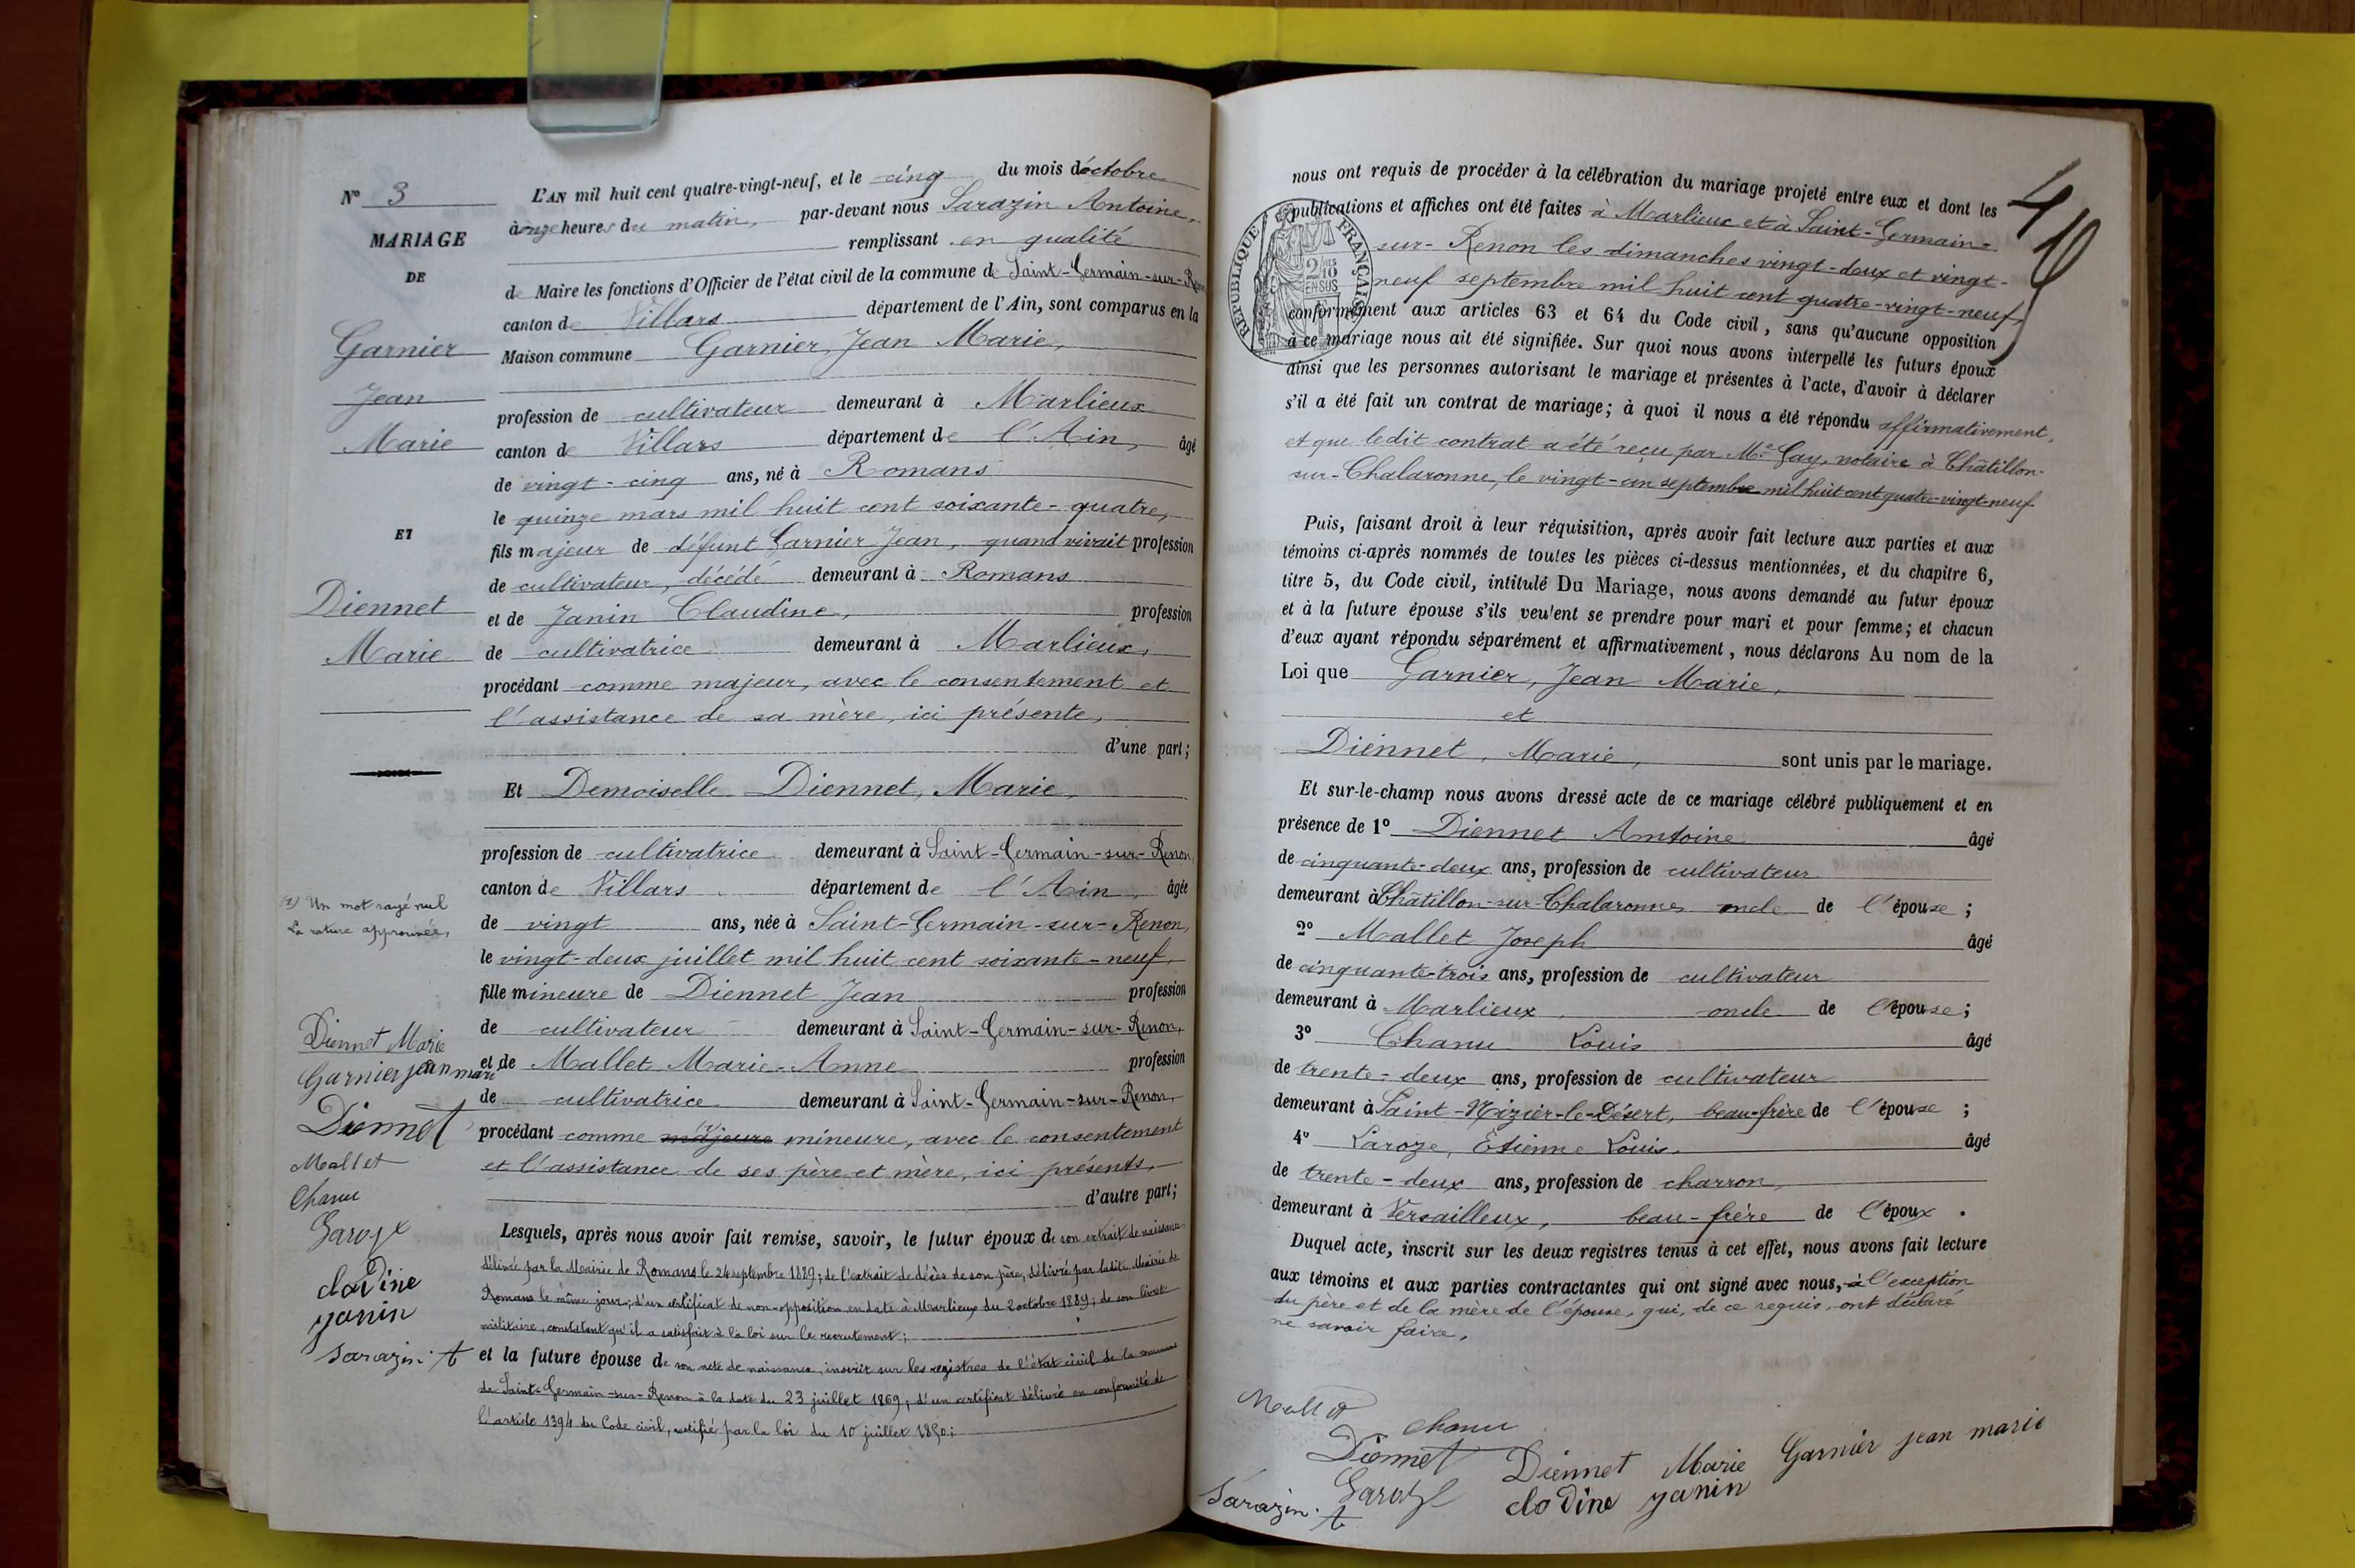 N° 3
MARIAGE
DE
Garnier
Jean
Marie
ET
Diennet
Marie
(1) Un mot rayé nul
La rature approuvée,
Diennet Marie
Garnier jean marie
Diennet
Mallet
Chanu
Laroze
clodine
yanin
Sarazin A
L'AN mil huit cent quatre-vingt-neuf, et le cinq du mois d'octobre
à onze heures du matin, par-devant nous Sarazin Antoine,
remplissant en qualité
de Maire les fonctions d'Officier de l'état civil de la commune de Saint-Germain-sur-Renon
canton de Villars département de l'Ain, sont comparus en la
Maison commune Garnier, Jean Marie,
profession de cultivateur demeurant à Marlieux
canton de Villars département de l'Ain, âgé
de vingt-cinq ans, né à Romans
le quinze mars mil huit cent soixante-quatre,
fils majeur de défunt Garnier Jean, quand vivait profession
de cultivateur, décédé demeurant à Romans
et de Janin Claudine, profession
de cultivatrice demeurant à Marlieux,
procédant comme majeur, avec le consentement et
l'assistance de sa mère, ici présente,
d'une part;
Et Demoiselle Diennet, Marie,
profession de cultivatrice demeurant à Saint-Germain-sur-Renon,
canton de Villars département de l'Ain, âgée
de vingt ans, née à Saint-Germain-sur-Renon,
le vingt-deux juillet mil huit cent soixante-neuf,
fille mineure de Diennet Jean profession
de cultivateur demeurant à Saint-Germain-sur-Renon,
et de Mallet Marie-Anne profession
de cultivatrice demeurant à Saint-Germain-sur-Renon,
procédant comme majeure (1) mineure, avec le consentement
et l'assistance de ses père et mère, ici présents,
d'autre part;
Lesquels, après nous avoir fait remise, savoir, le futur époux de son extrait de naissance
délivré par la Mairie de Romans le 24 septembre 1889; de l'extrait de décès de son père, délivré par ladite Mairie de
Romans le même jour; d'un certificat de non-opposition, en date à Marlieux du 2 octobre 1889; de son livret
militaire, constatant qu'il a satisfait à la loi sur le recrutement;
et la future épouse de son acte de naissance, inscrit sur les registres de l'état civil de la commune
de Saint-Germain-sur-Renon à la date du 23 juillet 1869; d'un certificat délivré en conformité de
l'article 1394 du Code civil, rectifié par la loi du 10 juillet 1850;
nous ont requis de procéder à la célébration du mariage projeté entre eux et dont les
publications et affiches ont été faites à Marlieux et à Saint-Germain-
sur-Renon les dimanches vingt-deux et vingt-
neuf septembre mil huit cent quatre-vingt-neuf,
conformément aux articles 63 et 64 du Code civil, sans qu'aucune opposition
à ce mariage nous ait été signifiée. Sur quoi nous avons interpellé les futurs époux
ainsi que les personnes autorisant le mariage et présentes à l'acte, d'avoir à déclarer
s'il a été fait un contrat de mariage; à quoi il nous a été répondu affirmativement,
et que ledit contrat a été reçu par Me Gay, notaire à Châtillon-
sur-Chalaronne, le vingt-un septembre mil huit cent quatre-vingt-neuf
Puis, faisant droit à leur réquisition, après avoir fait lecture aux parties et aux
témoins ci-après nommés de toutes les pièces ci-dessus mentionnées, et du chapitre 6,
titre 5, du Code civil, intitulé Du Mariage, nous avons demandé au futur époux
et à la future épouse s'ils veulent se prendre pour mari et pour femme; et chacun
d'eux ayant répondu séparément et affirmativement, nous déclarons Au nom de la
Loi que Garnier, Jean Marie,
et
Diennet, Marie, sont unis par le mariage.
Et sur-le-champ nous avons dressé acte de ce mariage célébré publiquement et en
présence de 1° Diennet Antoine âgé
de cinquante-deux ans, profession de cultivateur
demeurant à Châtillon-sur-Chalaronne, oncle de l'épouse;
2° Mallet Joseph âgé
de cinquante-trois ans, profession de cultivateur
demeurant à Marlieux oncle de l'épouse;
3° Chanu Louis âgé
de trente-deux ans, profession de cultivateur
demeurant à Saint-Nizier-le-Désert, beau-frère de l'épouse;
4° Laroze, Etienne Louis, âgé
de trente-deux ans, profession de charron,
demeurant à Versailleux, beau-frère de l'époux.
Duquel acte, inscrit sur les deux registres tenus à cet effet, nous avons fait lecture
aux témoins et aux parties contractantes qui ont signé avec nous, à l'exception
du père et de la mère de l'épouse, qui, de ce requis, ont déclaré
ne savoir faire.
Mallet
Chanu
Diennet
Diennet Marie
Garnier jean marie
Laroze
clodine yanin
Sarazin A
RÉPUBLIQUE FRANÇAISE
2/10
EN SUS